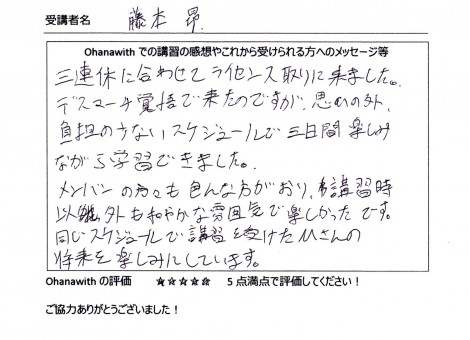 受講者名 藤本 昴
Ohanawith での講習の感想やこれから受けられる方へのメッセージ等
三連休に合わせてライセンス取りに来ました。
デスマーチ覚悟で来たのですが、思いの外、
負担の少ないスケジュールで三日間楽しみ
ながら学習できました。
メンバーの方々も色んな方がおり、講習時
以外も和やかな雰囲気で楽しかったです。
同じスケジュールで講習を受けたMさんの
将来を楽しみにしています。
Ohanawith の評価 ★★★★★ 5 点満点で評価してください！
ご協力ありがとうございました！